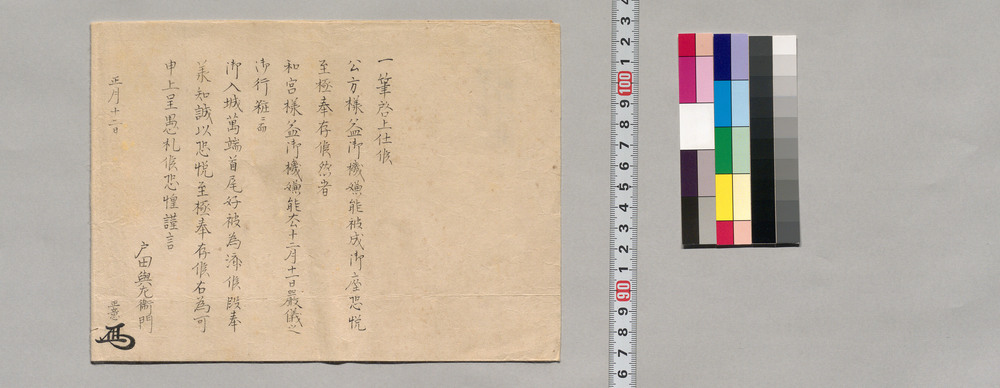 一筆啓上仕候
公方様益御機嫌能被成御座恐悦
至極奉存候然者
和宮様益御機嫌能去十二月十一日厳儀之
御行粧ニ而
御入城萬端首尾好被為済候段奉
承知誠以恐悦至極奉存候右為可
申上呈愚札候恐惶謹言
戸田與左衛門
正月十二日
4
3
2
1
100
9
8
7
6
5
4
3
2
1
90
9
8
7
6